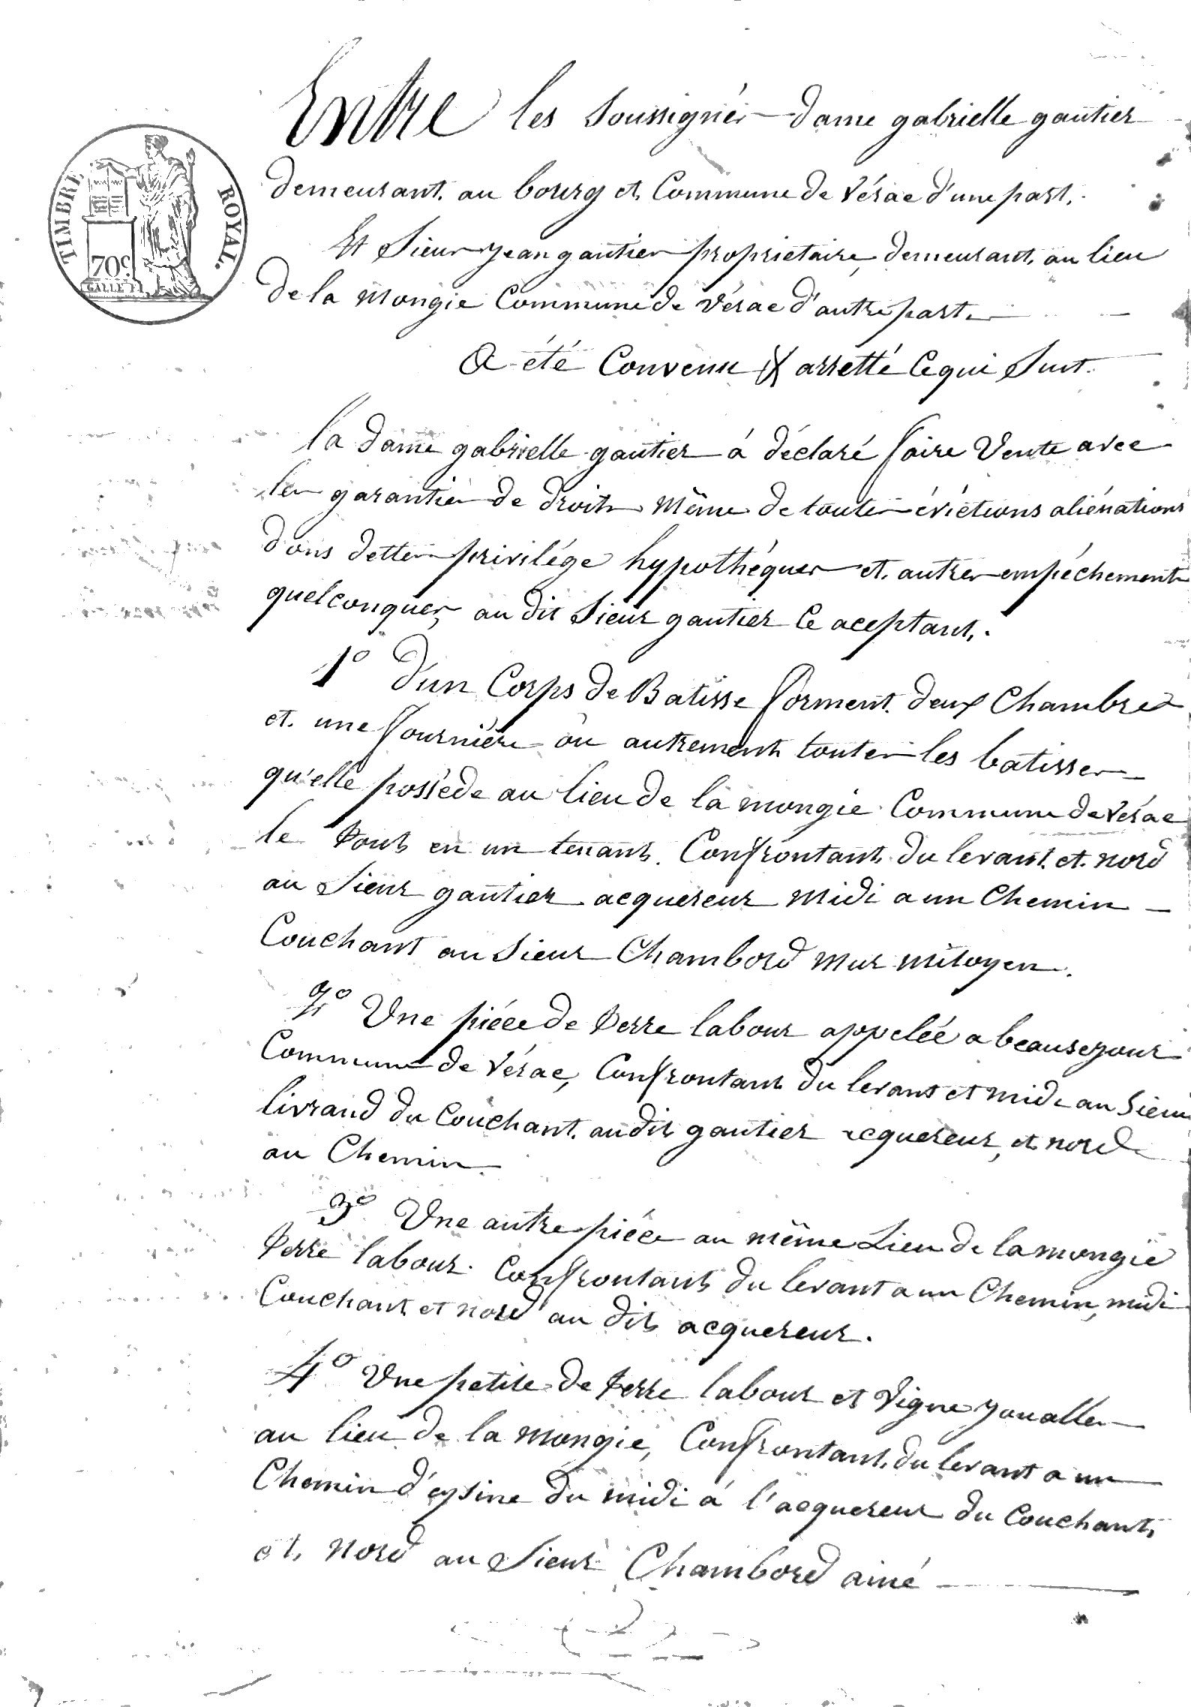 TIMBRE ROYAL.
70c
Entre les soussignés dame gabrielle gautier
demeurant au bourg et Commune de Vérac d'une part,
Et Sieur jean gautier propriétaire, demeurant au lieu
de la mongie Commune de Vérac d'autre part.
A été Convenu & arretté Ce qui Suit.
la dame gabrielle gautier á déclaré faire Vente avec
les garanties de droits même de toutes évictions aliénations
dons dettes privilége hypothéques et autres empéchements
quelconques, au dit Sieur gautier Ce aceptant.
1º D'un Corps de Batisse forment deux Chambres
et une fournière ou autrement toutes les batisses
qu'elle posséde au lieu de la mongie Commune de Vérac
le tout en un tenant. Confrontant du levant et nord
au Sieur gautier acquereur midi a un Chemin
Couchant au Sieur Chambord mur mitoyen.
2º Une piéce de terre labour appelée a beausejour
Commune de Vérac, Confrontant du levant et midi au Sieur
livraud du Couchant au dit gautier acquereur, et nord
au Chemin
3º Une autre piéce au même Lieu de la mongie
terre labour. Confrontant du levant a un Chemin, midi
Couchant et nord au dit acquereur.
4º Une petite de terre labour et Vigne joualles
au lieu de la mongie, Confrontant du levant a un
Chemin d'eysine du midi á l'acquereur du Couchant
et nord au Sieur Chambord ainé